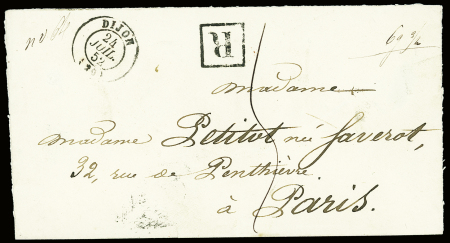 DIJON
24
JUIL.
52
(20)
R
Madame
Madame Petitot née Saverot,
32, rue de Penthièvre
à Paris.